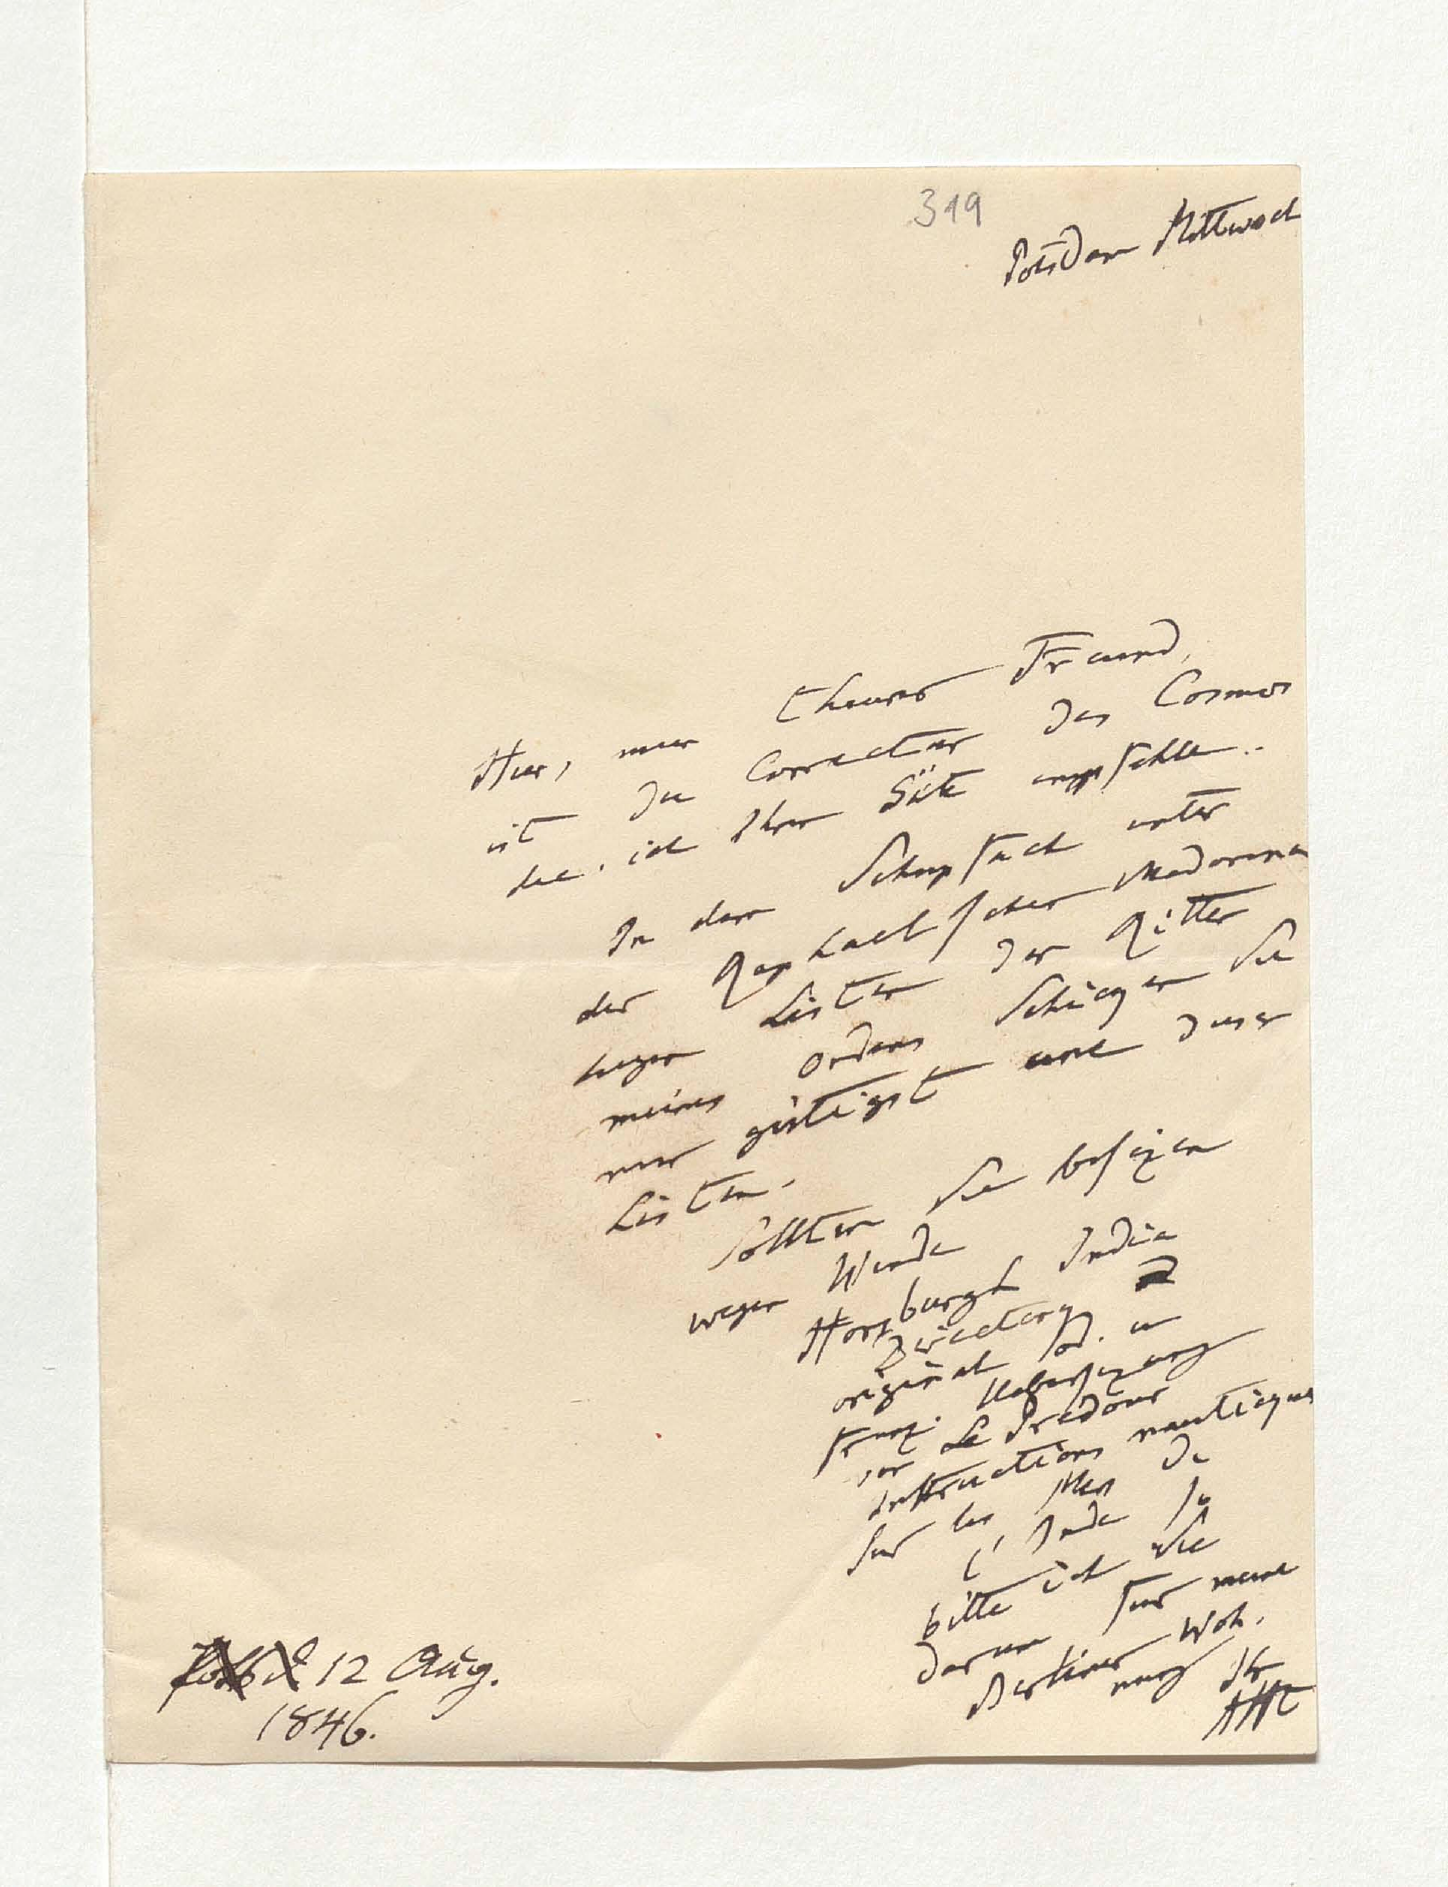 319
Potsdam Mittwoch
Hier, mein theurer Freund,
ist die Correctur des Cosmos
die ich Ihrer Güte empfehle..
In dem Schupfach unter
der Raphaelischen Madonna
liegen Listen der Ritter
meines Ordens Schicken Sie
mir gütigst eine dieser
Listen.
Sollten Sie besizen
wegen Winde
Horsburgh India
Directory
original od. in
franz. Uebersezung
von Le Predour
instructions nautiques
sur les Mers de
l'Inde so
bitte ich Sie
darum für meine
Berliner Woh.
nung Ihr
AHt
12 Aug.
1846.